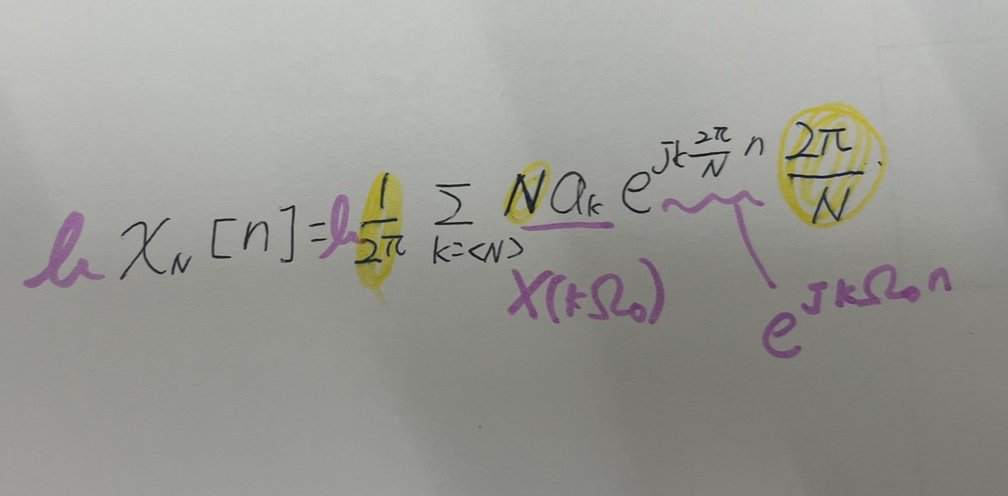 lim x_N[n] = lim 1/2π Σ_{k=<N>} N a_k e^{jk 2π/N n} 2π/N
X(kΩ₀)
e^{jkΩ₀n}